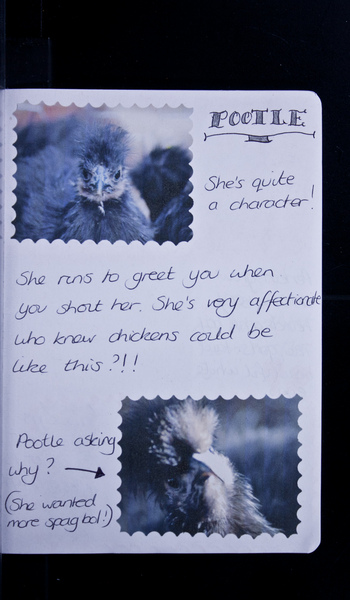 POOTLE
She's quite
a character!
She runs to greet you when
you shout her. She's very affectionate
who knew chickens could be
like this?!!
Pootle asking
why?
(She wanted
more spag bol!)